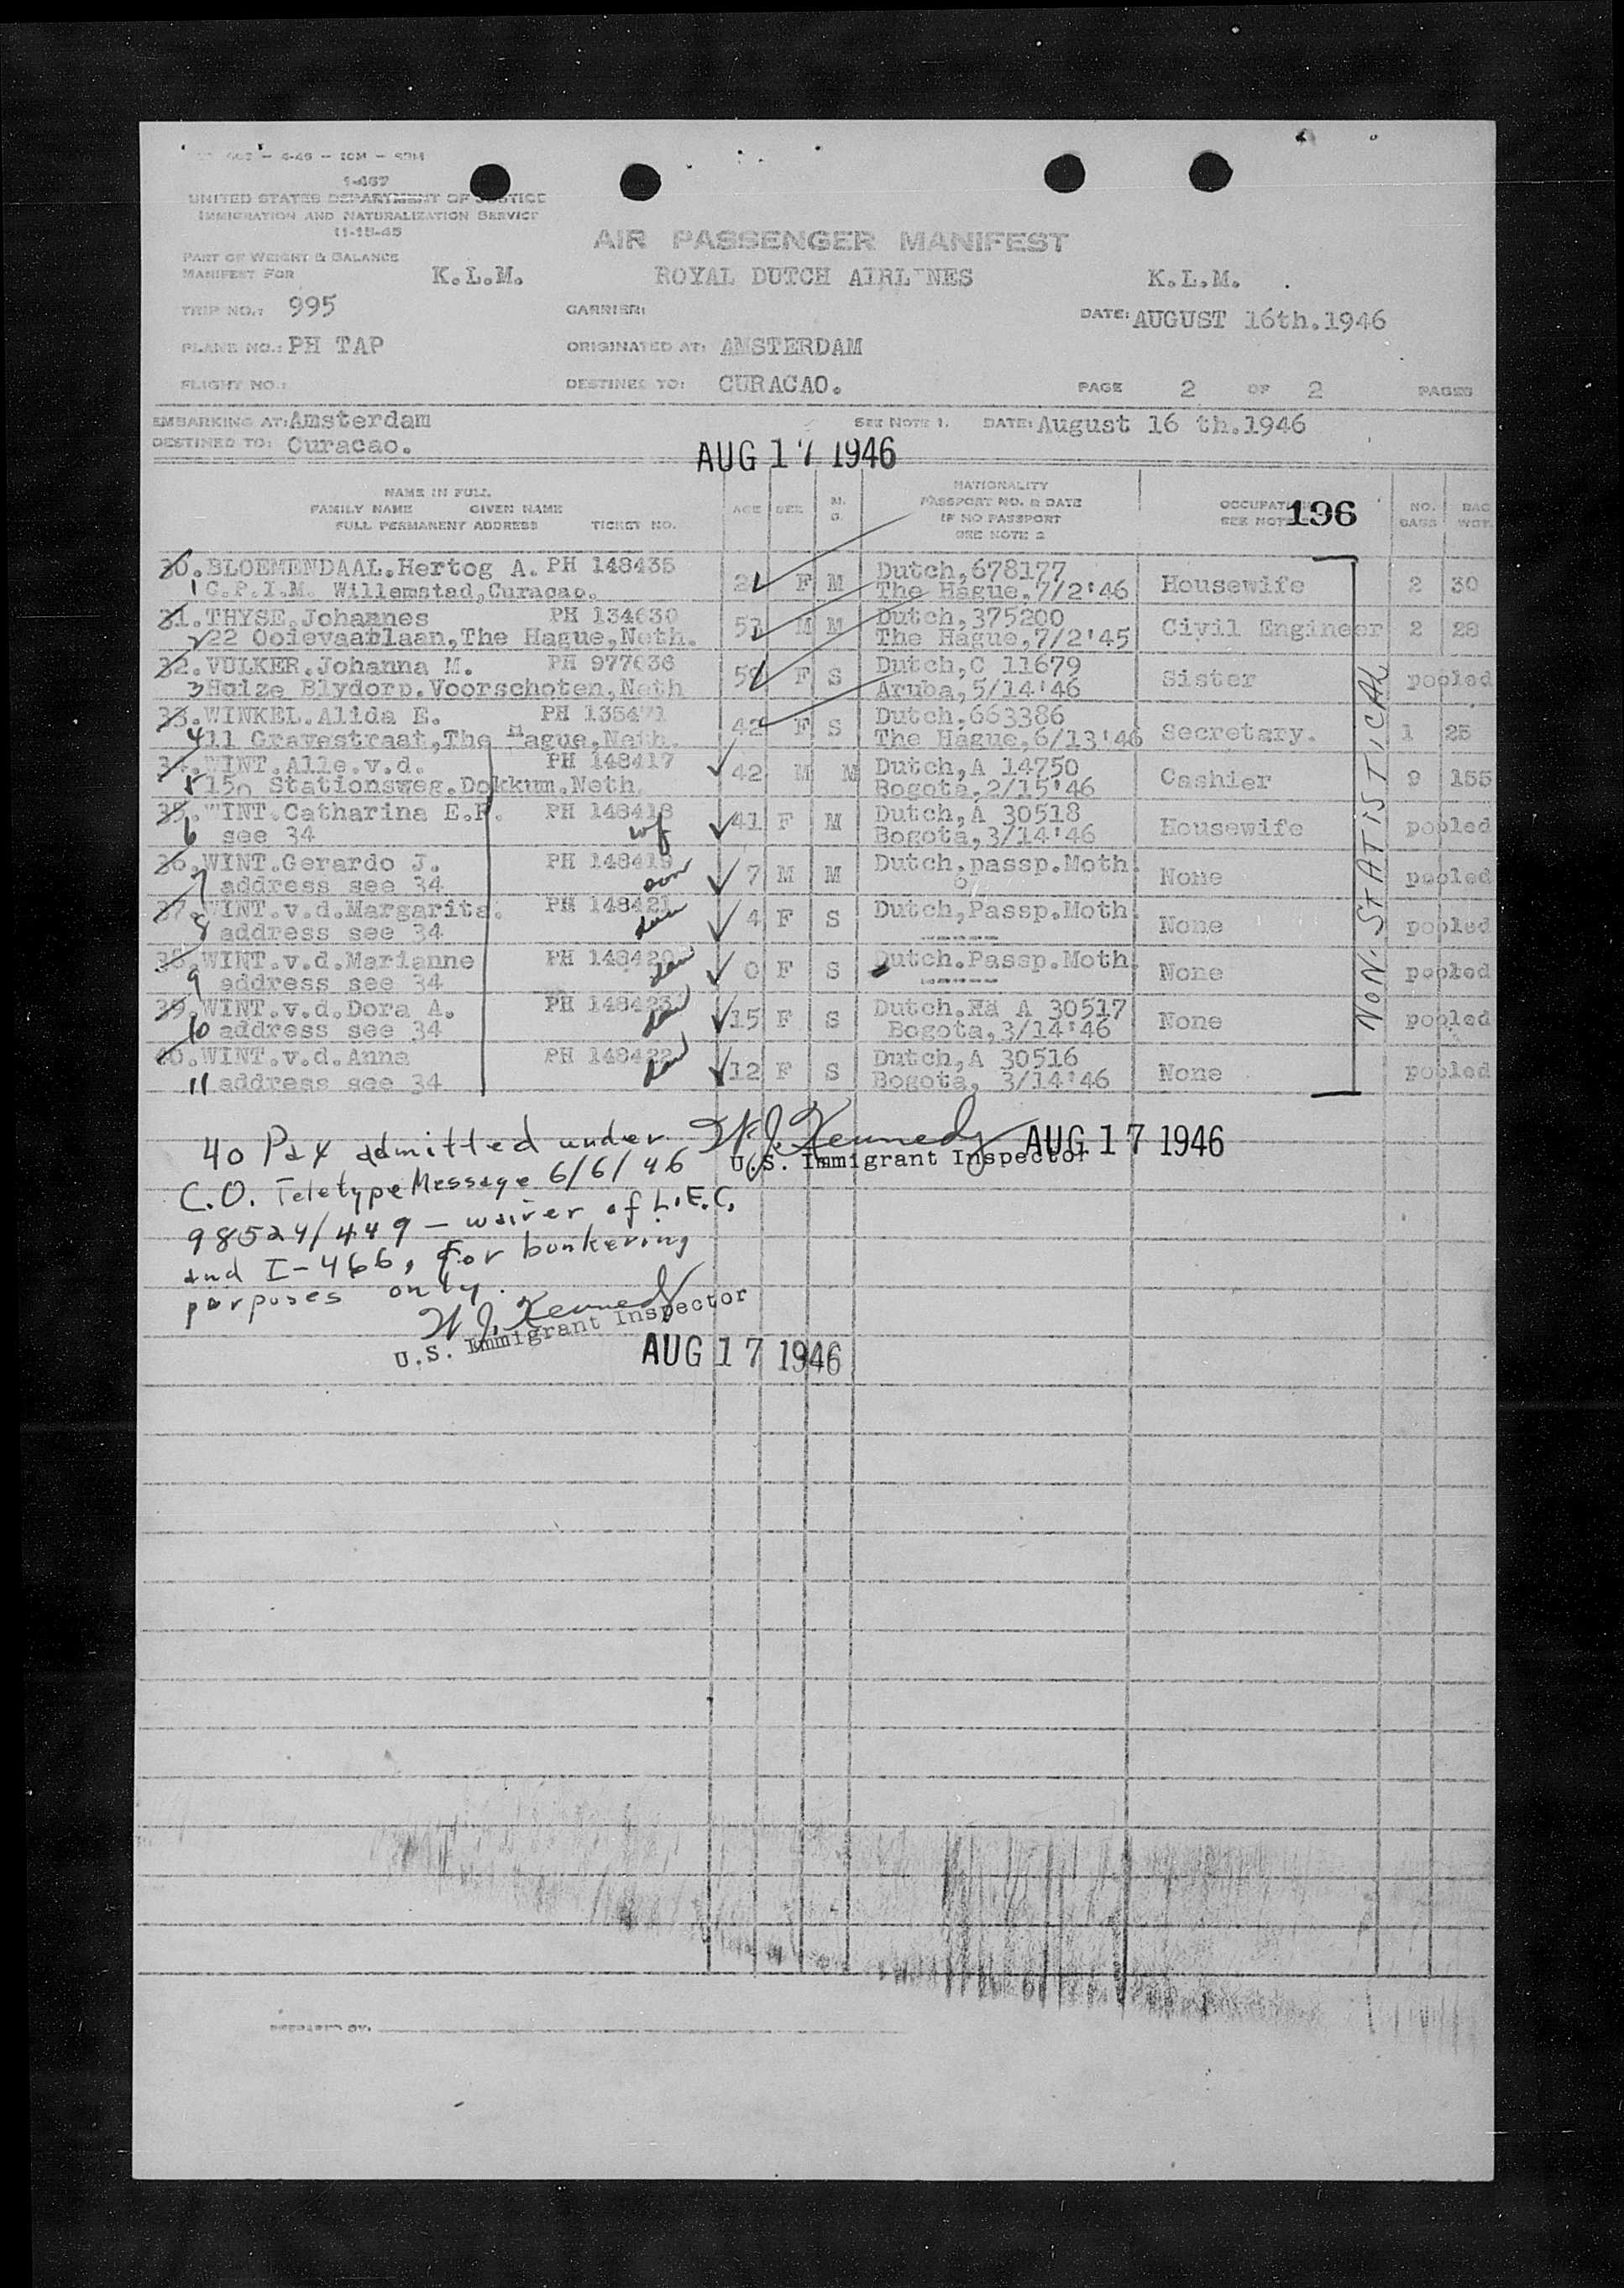 I-467
UNITED STATES DEPARTMENT OF JUSTICE
IMMIGRATION AND NATURALIZATION SERVICE
11-15-45
AIR PASSENGER MANIFEST
PART OF WEIGHT & BALANCE
MANIFEST FOR K.L.M. ROYAL DUTCH AIRLINES K.L.M.
TRIP NO.: 995 CARRIER: DATE: AUGUST 16th.1946
PLANE NO.: PH TAP ORIGINATED AT: AMSTERDAM
FLIGHT NO.: DESTINED TO: CURACAO. PAGE 2 OF 2 PAGES
EMBARKING AT: Amsterdam SEE NOTE 1. DATE: August 16 th.1946
DESTINED TO: Curacao.
AUG 17 1946
NAME IN FULL
FAMILY NAME GIVEN NAME
FULL PERMANENT ADDRESS TICKET NO.
AGE SEX M. S.
NATIONALITY
PASSPORT NO. & DATE
IF NO PASSPORT
SEE NOTE 2
OCCUPATION
SEE NOTE
196
NO. BAGS
BAG WGT.
30. BLOEMENDAAL.Hertog A. PH 148435 F M Dutch,678177 Housewife 2 30
1 C.P.I.M. Willemstad,Curaçao. The Hague,7/2'46
31. THYSE.Johannes PH 134630 M M Dutch,375200 Civil Engineer 2 28
2 22 Ooievaarlaan,The Hague,Neth. The Hague,7/2'45
32. VULKER.Johanna M. PH 977636 F S Dutch,C 11679 Sister pooled
3 Huize Blydorp.Voorschoten,Neth Aruba,5/14'46
33. WINKEL.Alida E. PH 135471 42 F S Dutch.663386 Secretary. 1 25
4 11 Gravestraat,The Hague,Neth. The Hague,6/13'46
34. WINT.Alle.v.d. PH 148417 42 M M Dutch,A 14750 Cashier 9 155
5 Stationsweg.Dokkum.Neth. Bogota,2/15'46
35. WINT.Catharina E.P. PH 148418 wf 41 F M Dutch,A 30518 Housewife pooled
6 see 34 Bogota,3/14'46
36. WINT.Gerardo J. PH 148419 son 7 M M Dutch.passp.Moth. None pooled
7 address see 34
37. WINT.v.d.Margarita. PH 148421 dau 4 F S Dutch,Passp.Moth. None pooled
8 address see 34
38. WINT.v.d.Marianne PH 148420 dau 0 F S Dutch.Passp.Moth. None pooled
9 address see 34
39. WINT.v.d.Dora A. PH 148423 dau 15 F S Dutch. A 30517 None pooled
10 address see 34 Bogota,3/14'46
40. WINT.v.d.Anna PH 148422 dau 12 F S Dutch,A 30516 None pooled
11 address see 34 Bogota, 3/14'46
NON-STATISTICAL
40 Pax admitted under W.J. Kennedy AUG 17 1946
U.S. Immigrant Inspector
C.O. Teletype Message 6/6/46
98524/449 – waiver of L.E.C.
and I-466, for bunkering
purposes only.
W J. Kennedy
U.S. Immigrant Inspector
AUG 17 1946
PREPARED BY.